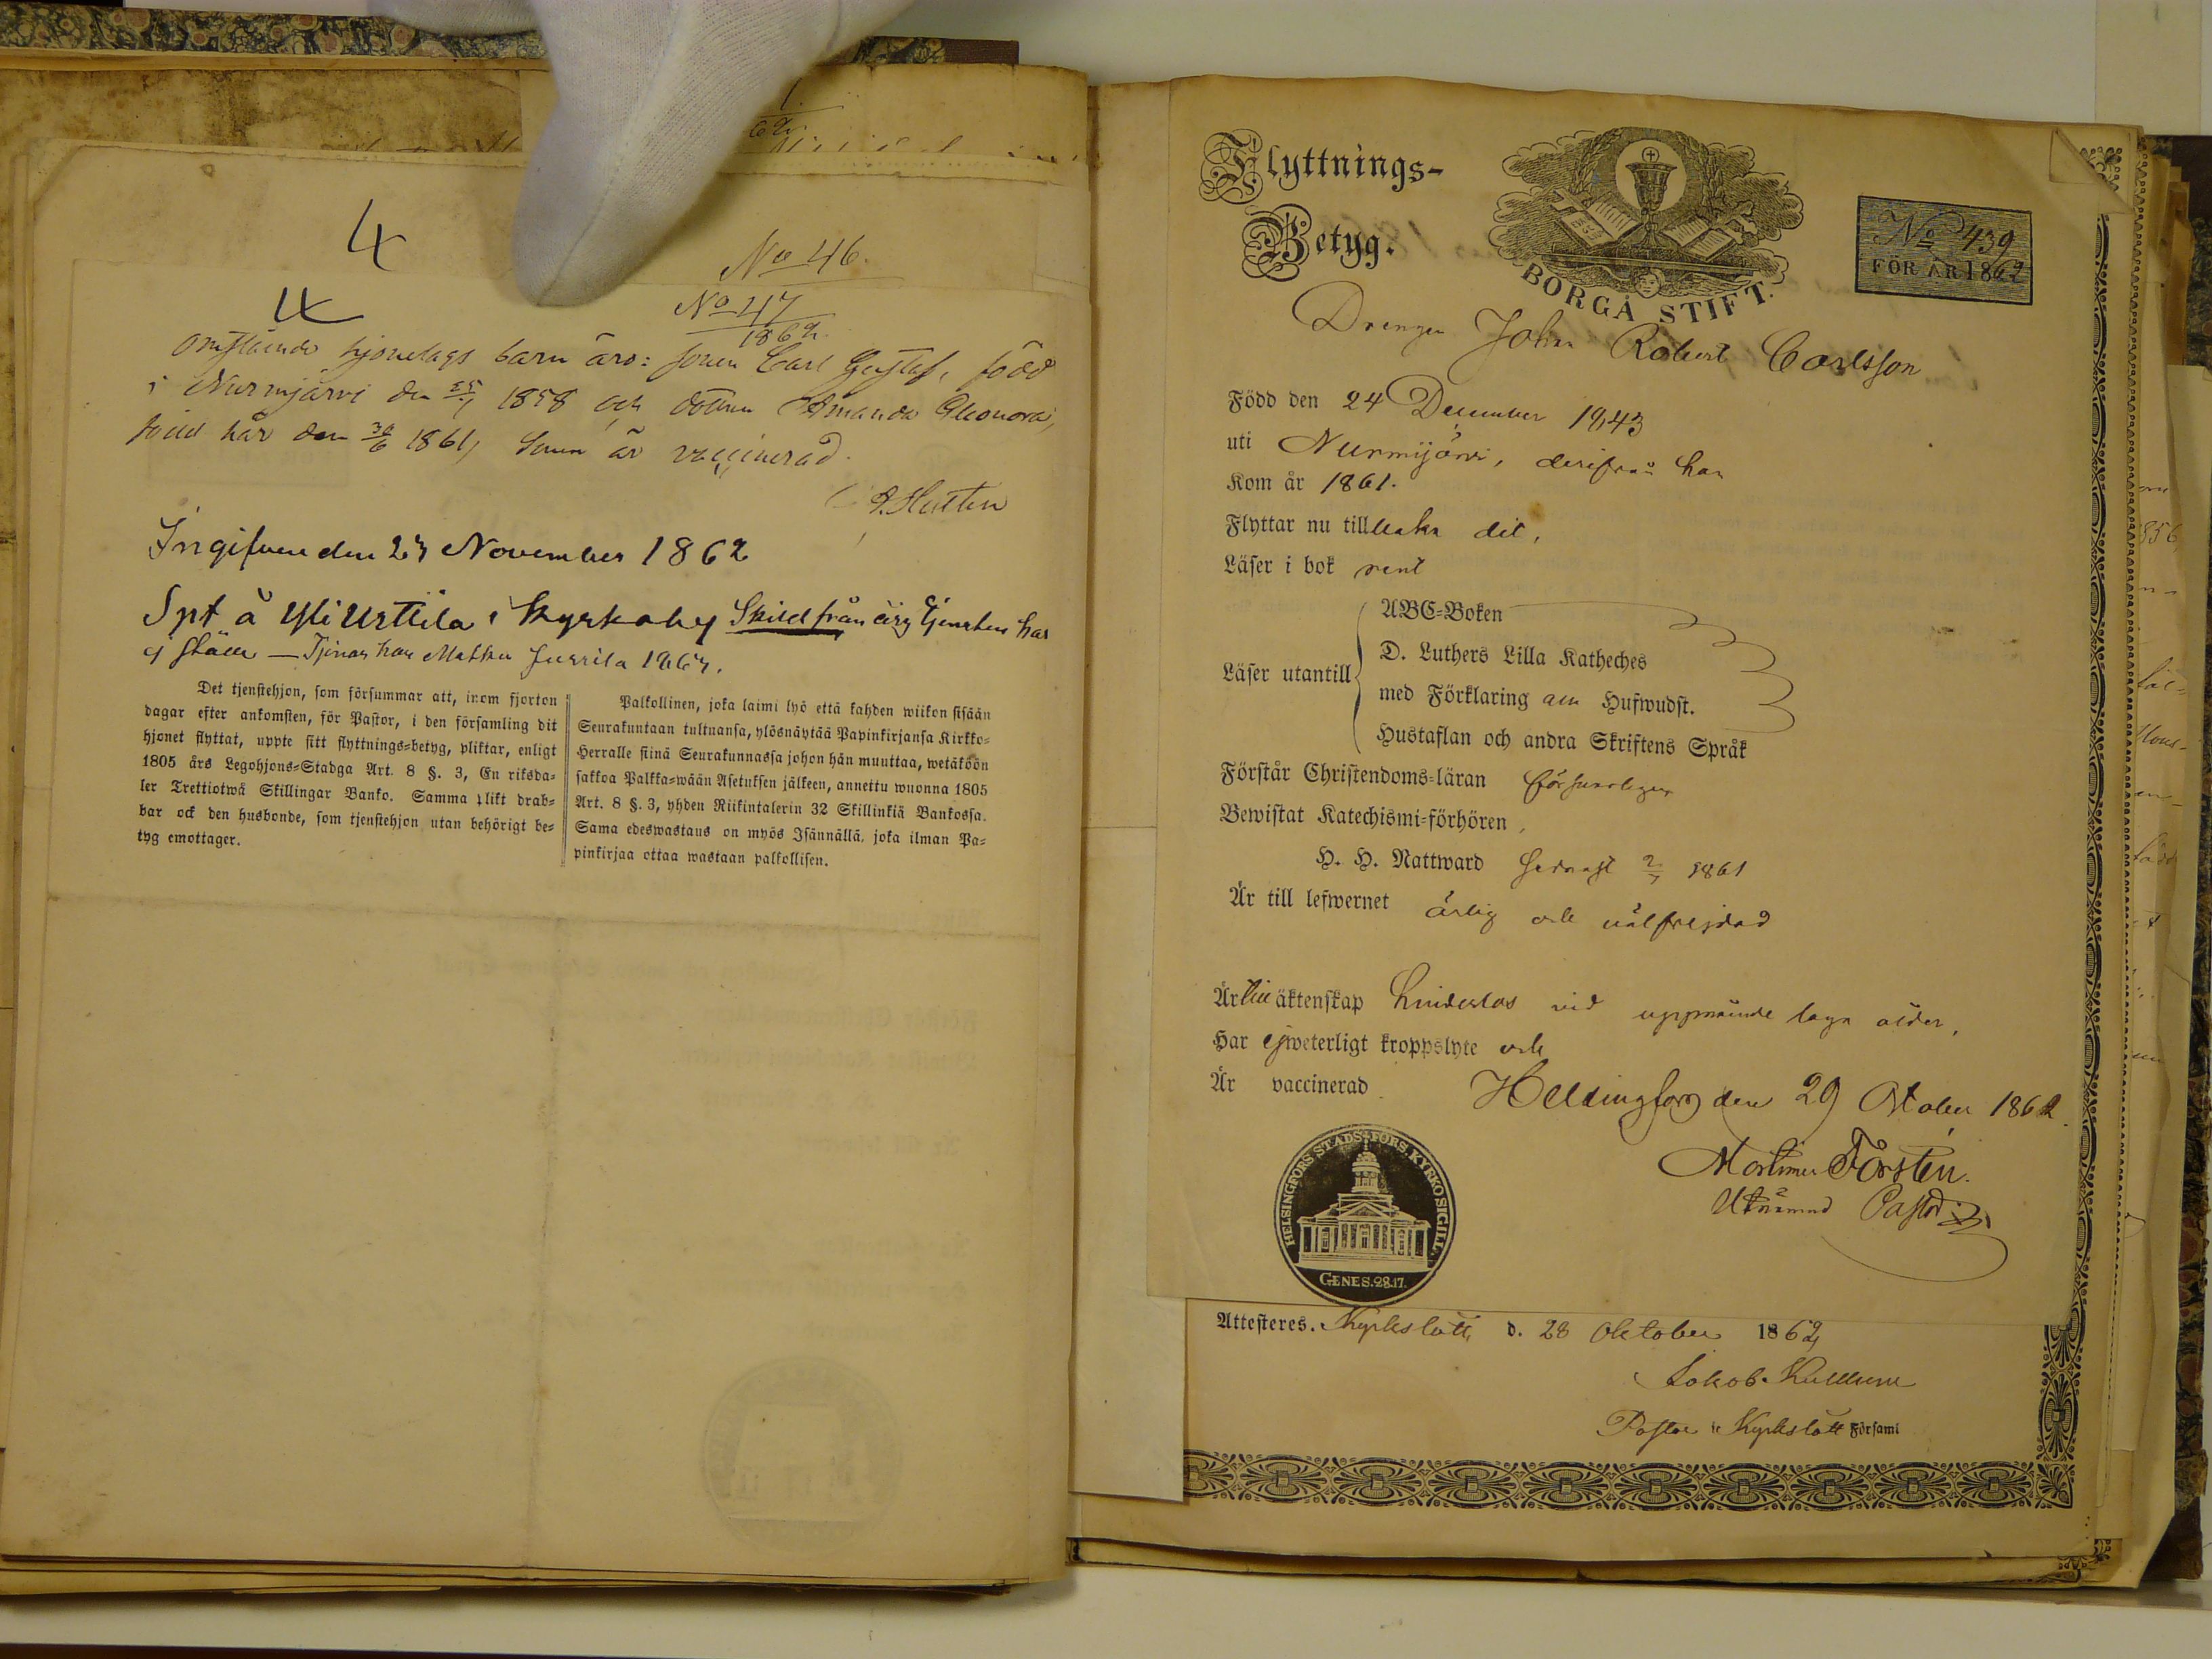 4
No 46.
4
No 47
1862.
Omstående hjonelags barn äro: sonen Carl Gustaf, född
i Nurmijärvi den 25/1 1858 och dottren Amanda Eleonora,
född här den 30/6 1861, Sonen är vaccinerad.
Ingifven den 23 November 1862
Spt å Yli Urttila i Kyrkoby Skild från sig tjensten har
ej ställe — Tjenar hos Matts Jussila 1863.
Det tjenstehjon, som försummar att, inom fjorton
dagar efter ankomsten, för Pastor, i den församling dit
hjonet flyttat, uppte sitt flyttnings=betyg, pliktar, enligt
1805 års Legohjons=Stadga Art. 8 §. 3, En riksda=
ler Trettiotwå Skillingar Banko. Samma plikt drab=
bar ock den husbonde, som tjenstehjon utan behörigt be=
tyg emottager.
Palkollinen, joka laimi lyö että kahden wiikon sisään
Seurakuntaan tultuansa, ylösnäytää Papinkirjansa Kirkko=
Herralle siinä Seurakunnassa johon hän muuttaa, wetäköön
sakkoa Palkka=wään Asetuksen jälkeen, annettu wuonna 1805
Art. 8 §. 3, yhden Riikintalerin 32 Skillinkiä Bankossa.
Sama edeswastaus on myös Isännällä, joka ilman Pa=
pinkirjaa ottaa wastaan palkollisen.
Flyttnings-
Betyg.
BORGÅ STIFT.
No 439
FÖR ÅR 1862
Drengen Johan Robert Carlsson
Född den 24 December 1843
uti Nurmijärvi, derifrån han
Kom år 1861.
Flyttar nu tillbaka dit,
Läser i bok rent
ABC=Boken
Läser utantill
D. Luthers Lilla Katheches
med Förklaring all Hufwudst.
Hustaflan och andra Skriftens Språk
Förstår Christendoms=läran försvarligen
Bewistat Katechismi=förhören,
H. H. Nattward sednast 2/7 1861
Är till lefwernet ärlig och välfrejdad
Är till äktenskap hinderlös vid uppnående laga ålder,
Har ej weterligt kroppslyte och
Är vaccinerad.
Helsingfors den 29 Oktober 1862.
Mortimer Forstén.
Utnämnd Pastor
HELSINGFORS STADS FÖRS. KYRKO SIGILL.
GENES. 28.17.
Attesteres. Kyrkslätt, d. 28 Oktober 1862
Pastor i Kyrkslätt Församl